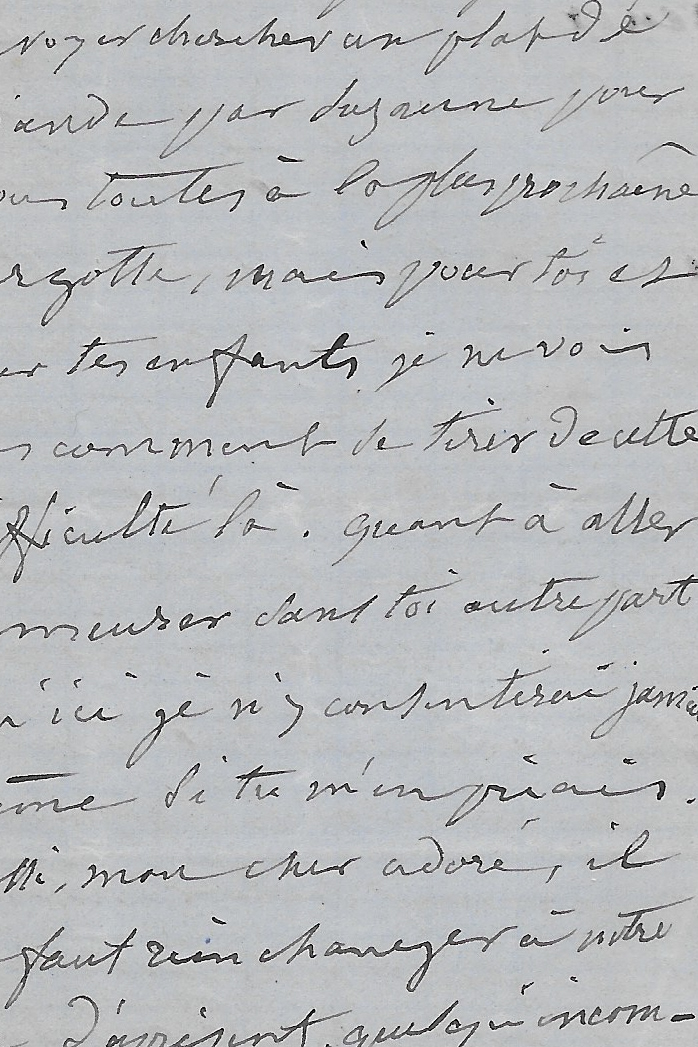 voyer chercher un plat de
iande par Suzanne pour
ous toutes à la plus prochaine
argotte, mais pour toi et
ur tes enfants je ne vois
s comment se tirer de cette
fficulté là. quant à aller
meurer sans toi autre part
u'ici je n'y consentirai jamai
ême si tu m'en priais.
ssi, mon cher adoré, il
faut rien changer à notre
d'àprésent, quelqu'incom-